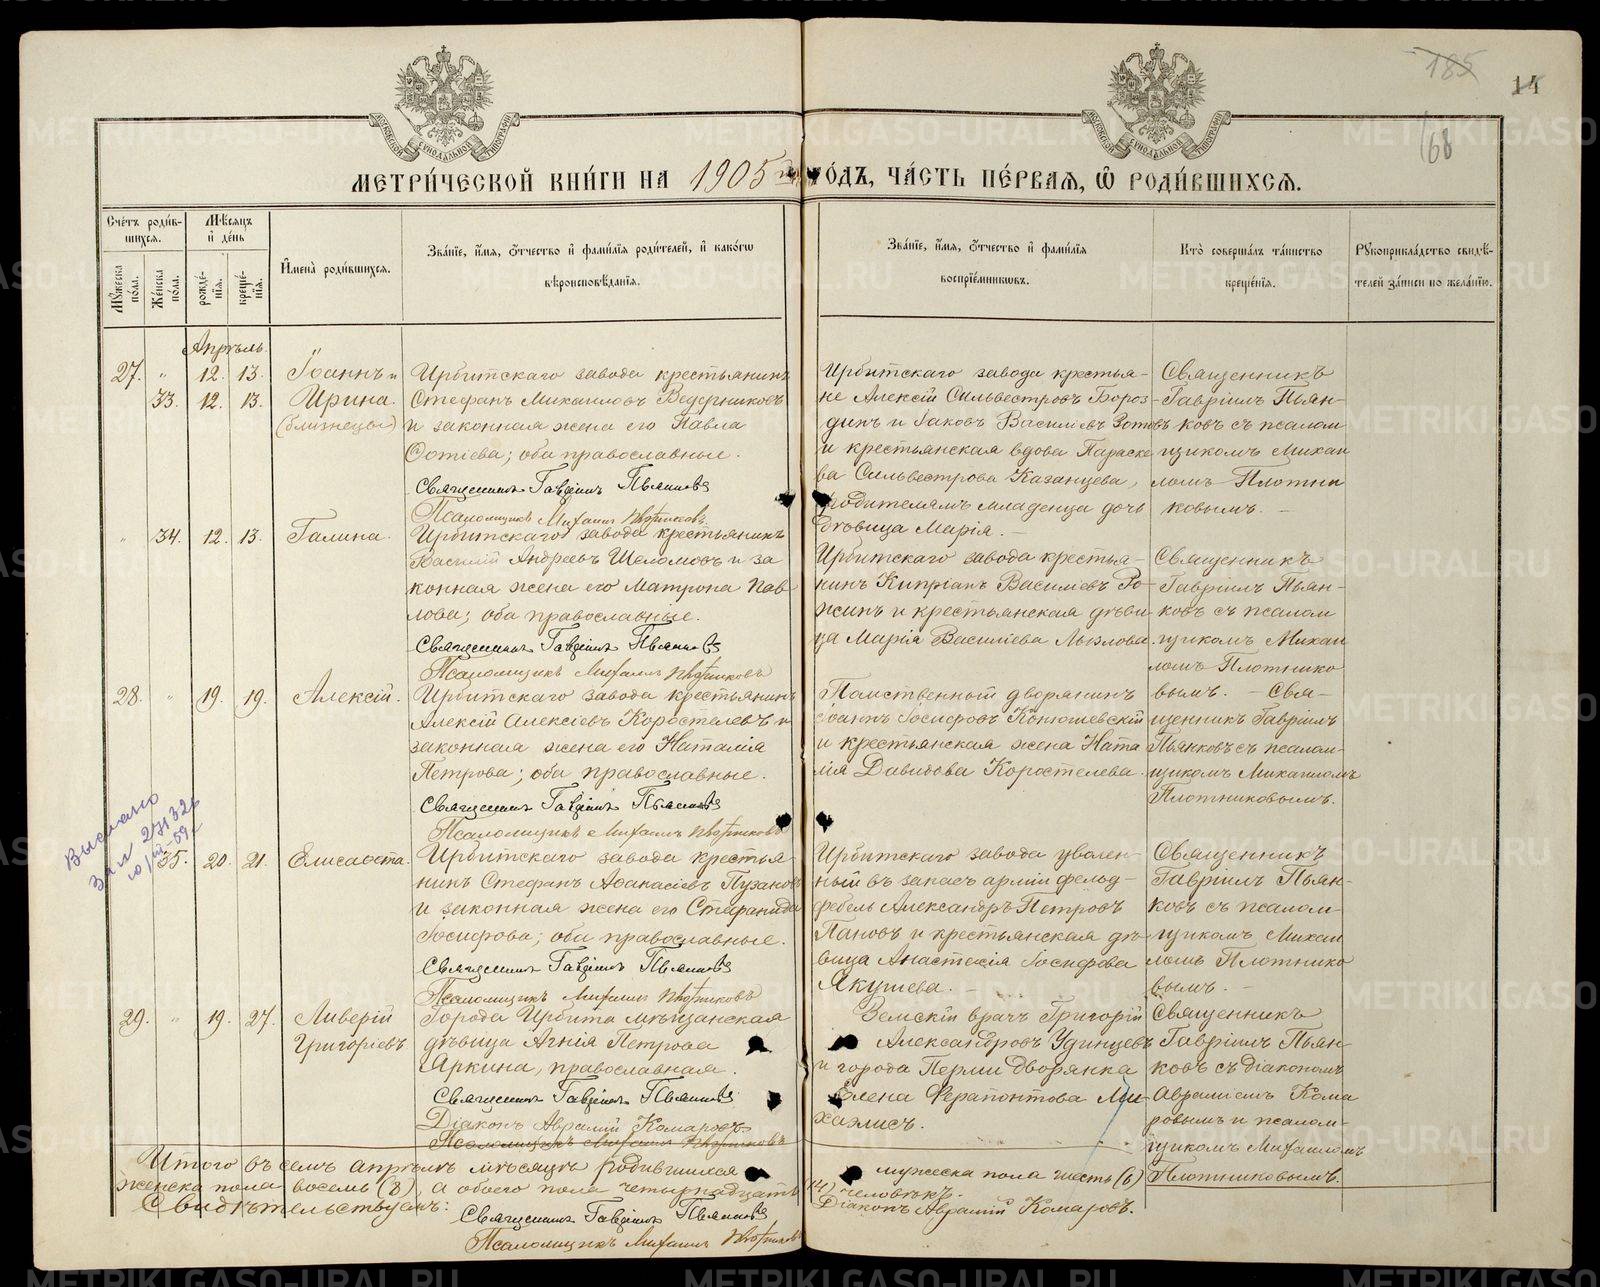 185
14
68
МОСКОВСКОЙ СУНОДАЛЬНОЙ ТИПОГРАФІИ
МОСКОВСКОЙ СУНОДАЛЬНОЙ ТИПОГРАФІИ
МЕТРИ́ЧЕСКОЙ КНИ́ГИ НА 1905 ГО́ДЪ, ЧА́СТЬ ПЕ́РВАЯ, Ѡ РОДИ́ВШИХСѦ.
Сче́тъ роди́в-
шихсѧ.
Мѣсѧцъ
и де́нь
Му́жеска
по́ла.
Же́нска
по́ла.
рожде́-
нїѧ.
креще́-
нїѧ.
И́мена̀ роди́вшихсѧ.
Зва́нїе, и́мѧ, ѻ́тчество и фами́лїѧ роди́телей, и како́гѡ
вѣроисповѣ́данїѧ.
Зва́нїе, и́мѧ, ѻ́тчество и фами́лїѧ
воспрїе́мникѡвъ.
Кто̀ соверша́лъ та́инство
креще́нїѧ.
Рꙋкоприкла́дство свидѣ́-
телей за́писи по жела́нїю.
Апрѣль
27. " 12. 13. Іоаннъ и
33. 12. 13. Ирина.
(близнецы)
Ирбитскаго завода крестьянинъ
Стефанъ Михаиловъ Ведерниковъ
и законная жена его Павла
Фотіева; оба православные.
Священникъ Гавріилъ Пьянковъ
Псаломщикъ Михаилъ Плотниковъ
Ирбитскаго завода крестья-
не Алексій Сильвестровъ Бороз-
динъ и Іаковъ Василіевъ Зотовъ
и крестьянская вдова Параске
ва Сильвестрова Казанцева,
родителямъ младенца дочь
дѣвица Марія.
Священникъ
Гавріилъ Пьян-
ковъ съ псалом
щикомъ Михаи
ломъ Плотни
ковымъ.
" 34. 12. 13. Галина.
Ирбитскаго завода крестьянинъ
Василій Андреевъ Шеломовъ и за
конная жена его Матрона Пав
лова; оба православные.
Священникъ Гавріилъ Пьянковъ
Псаломщикъ Михаилъ Плотниковъ
Ирбитскаго завода крестья-
нинъ Кипріанъ Василіевъ Ро-
жинъ и крестьянская дѣви
ца Марія Василіева Лызлова.
Священникъ
Гавріилъ Пьян-
ковъ съ псалом
щикомъ Михаи
ломъ Плотнико
вымъ.
28. " 19. 19. Алексій.
Ирбитскаго завода крестьянинъ
Алексій Алексіевъ Коростелевъ и
законная жена его Наталія
Петрова; оба православные.
Священникъ Гавріилъ Пьянковъ
Псаломщикъ Михаилъ Плотниковъ
Потомственный дворянинъ
Іоаннъ Іосифовъ Конюшевскій
и крестьянская жена Ната
лія Давидова Коростелева.
Свя-
щенникъ Гавріилъ
Пьянковъ съ псалом-
щикомъ Михаиломъ
Плотниковымъ.
Выслано
35. 20. 21. Елисавета.
Ирбитскаго завода крестья-
нинъ Стефанъ Аѳанасіевъ Пузановъ
и законная жена его Стефанида
Іосифова; оба православные.
Священникъ Гавріилъ Пьянковъ
Псаломщикъ Михаилъ Плотниковъ
Ирбитскаго завода уволен-
ный въ запасъ арміи фельд-
фебель Александръ Петровъ
Пановъ и крестьянская дѣ-
вица Анастасія Іосифова
Якушева.
Священникъ
Гавріилъ Пьян-
ковъ съ псалом-
щикомъ Михаи
ломъ Плотнико
вымъ.
29. " 19. 27. Ливерій
Григоріевъ
Города Ирбита мѣщанская
дѣвица Агнія Петрова
Аркина, православная.
Священникъ Гавріилъ Пьянковъ
Діаконъ Авраамій Комаровъ
Псаломщикъ Михаилъ Плотниковъ
Земскій врачъ Григорій
Александровъ Удинцевъ
и города Перми дворянка
Елена Ферапонтова Ми-
хаэлисъ.
Священникъ
Гавріилъ Пьян-
ковъ съ діакономъ
Авраміемъ Кома
ровымъ и псалом-
щикомъ Михаиломъ
Плотниковымъ.
Итого въ семъ апрѣлѣ мѣсяцѣ родившихся мужеска пола шесть (6)
женска пола восемь (8), а обоего пола четырнадцать (14) человѣкъ.
Свидѣтельствуемъ: Священникъ Гавріилъ Пьянковъ
Діаконъ Аврамій Комаровъ.
Псаломщикъ Михаилъ Плотниковъ
METRIKI.GASO-URAL.RU